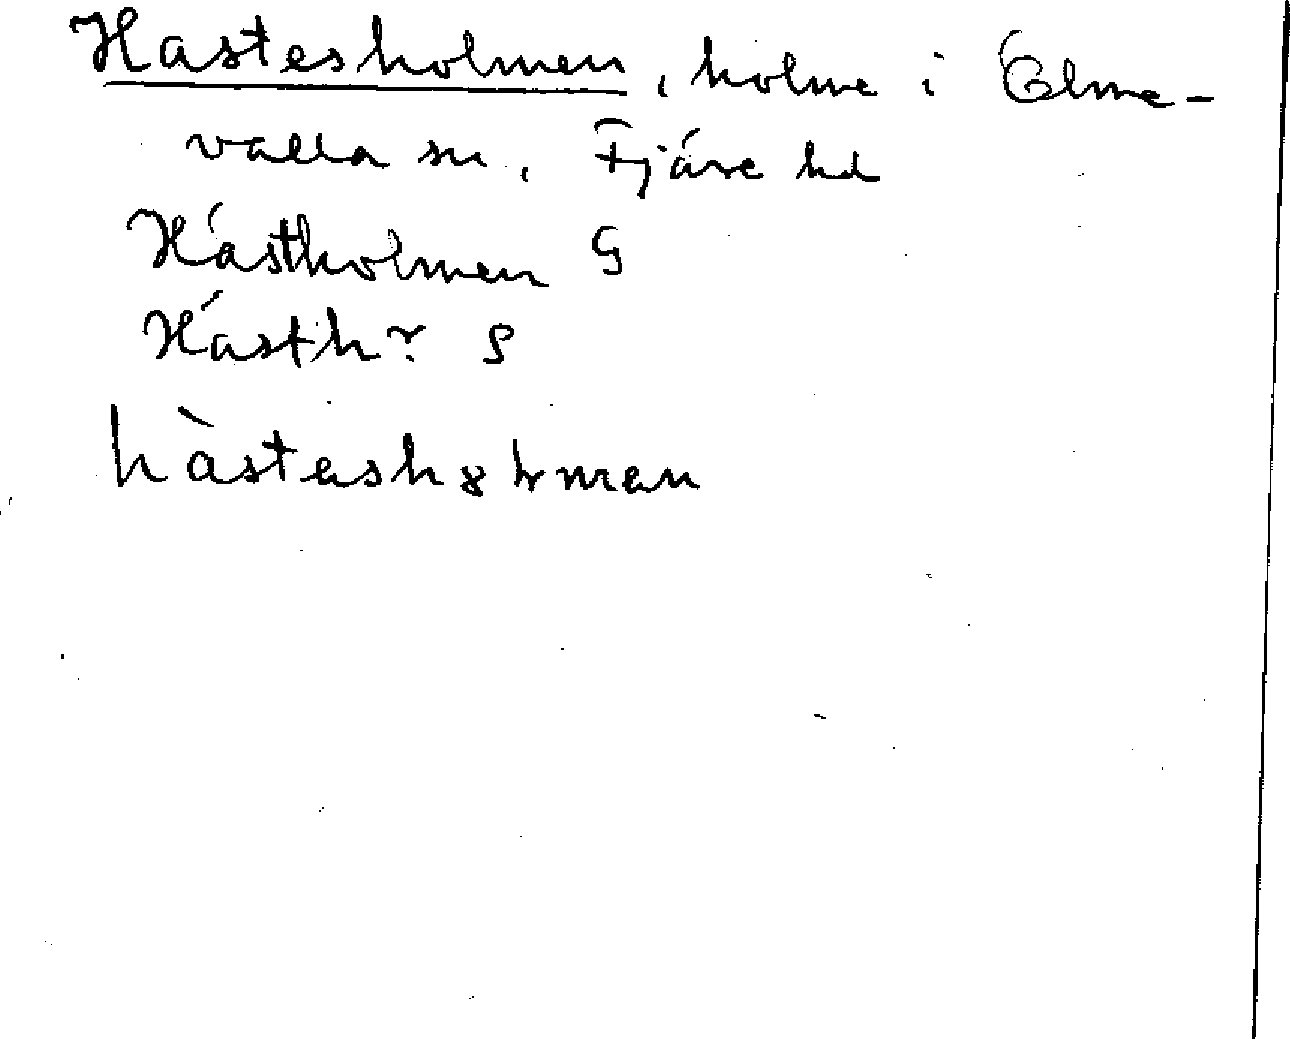 Hästesholmen, holme i Ölme-
valla sn, Fjäre hd
Hästholmen G
Hästh? S
hàstəsh